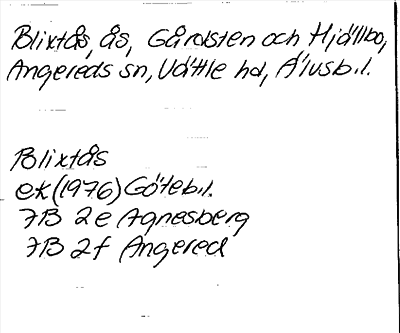 Blixtås, ås, Gårdsten och Hjällbo,
Angereds sn, Vättle hd, Älvsb.l.
Blixtås
ek (1976) Göteb.l.
7B 2e Agnesberg
7B 2f Angered